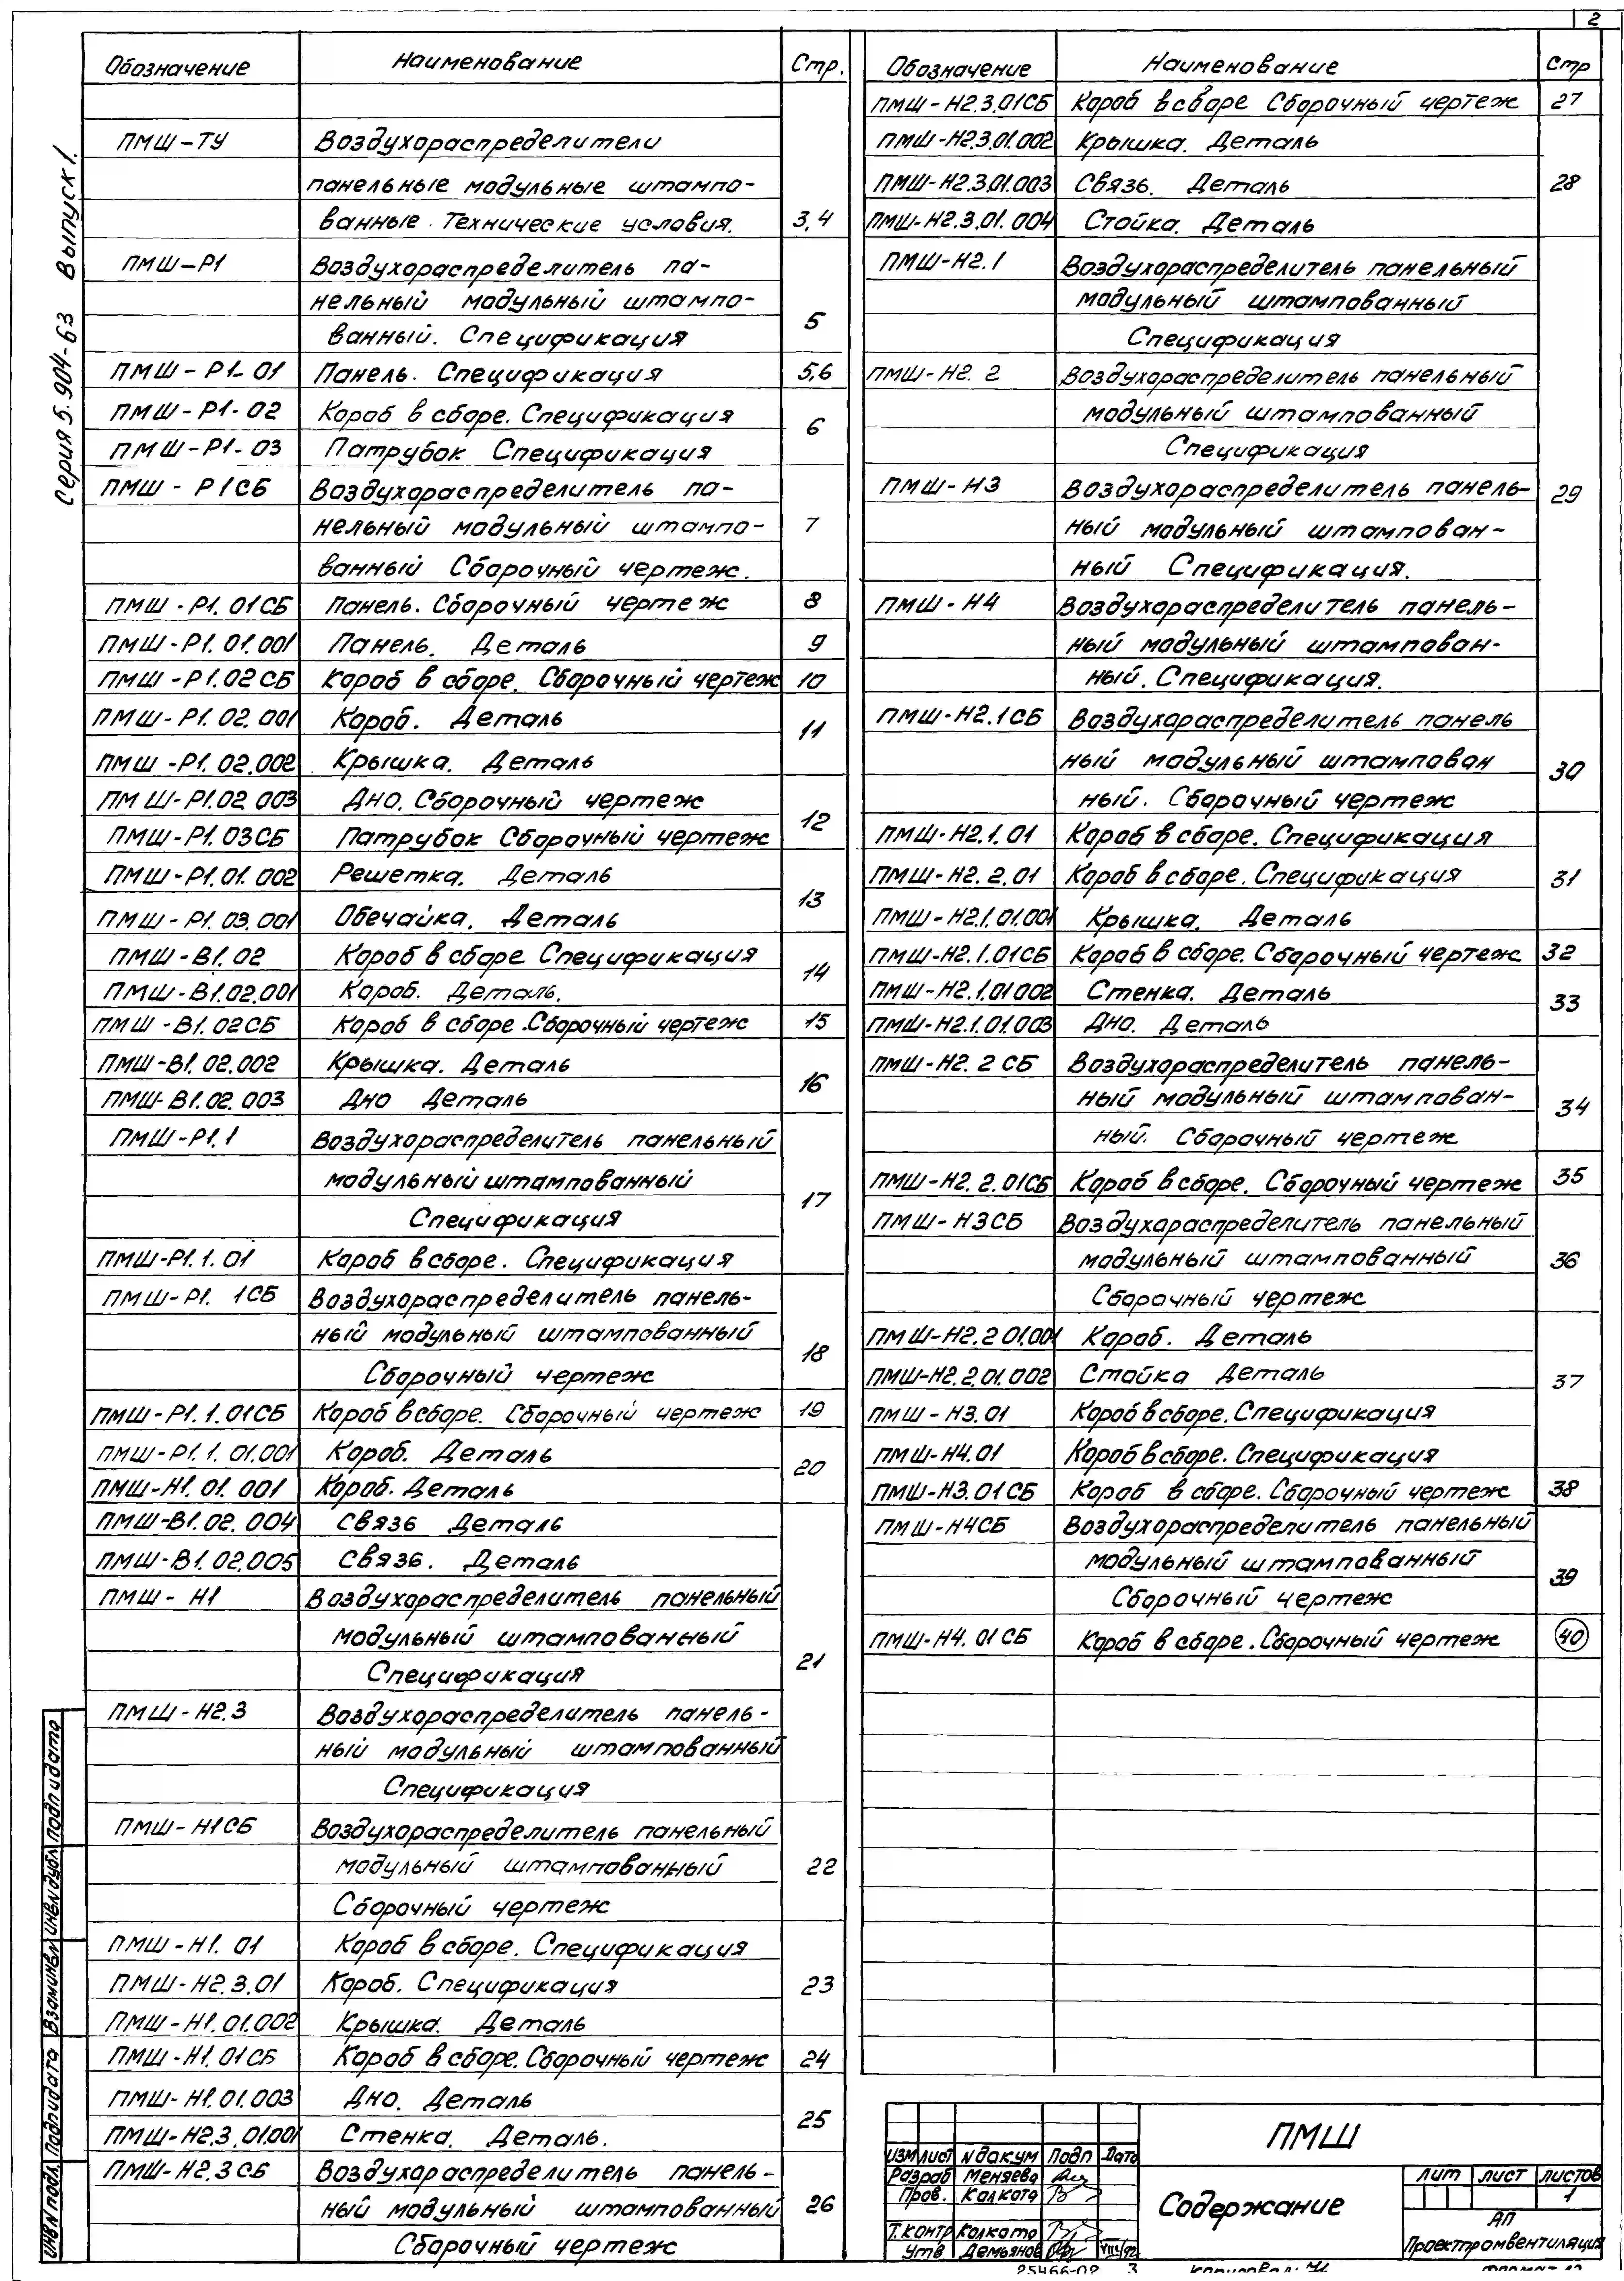 2
Серия 5.904-63 Выпуск 1.
Обозначение Наименование Стр.
ПМШ-ТУ Воздухораспределители
панельные модульные штампо-
ванные. Технические условия. 3,4
ПМШ-Р1 Воздухораспределитель па-
нельный модульный штампо-
ванный. Спецификация 5
ПМШ-Р1-01 Панель. Спецификация 5,6
ПМШ-Р1-02 Короб в сборе. Спецификация
ПМШ-Р1-03 Патрубок Спецификация 6
ПМШ-Р1СБ Воздухораспределитель па-
нельный модульный штампо- 7
ванный Сборочный чертеж.
ПМШ-Р1.01СБ Панель. Сборочный чертеж 8
ПМШ-Р1.01.001 Панель. Деталь 9
ПМШ-Р1.02СБ Короб в сборе. Сборочный чертеж 10
ПМШ-Р1.02.001 Короб. Деталь 11
ПМШ-Р1.02.002 Крышка. Деталь
ПМШ-Р1.02 003 Дно. Сборочный чертеж 12
ПМШ-Р1.03СБ Патрубок Сборочный чертеж
ПМШ-Р1.01.002 Решетка. Деталь 13
ПМШ-Р1.03.001 Обечайка. Деталь
ПМШ-В1.02 Короб в сборе Спецификация 14
ПМШ-В1.02.001 Короб. Деталь.
ПМШ-В1.02СБ Короб в сборе. Сборочный чертеж 15
ПМШ-В1.02.002 Крышка. Деталь 16
ПМШ-В1.02.003 Дно Деталь
ПМШ-Р1.1 Воздухораспределитель панельный
модульный штампованный 17
Спецификация
ПМШ-Р1.1.01 Короб в сборе. Спецификация
ПМШ-Р1. 1СБ Воздухораспределитель панель-
ный модульный штампованный 18
Сборочный чертеж
ПМШ-Р1.1.01СБ Короб в сборе. Сборочный чертеж 19
ПМШ-Р1.1.01.001 Короб. Деталь 20
ПМШ-Н1.01.001 Короб. Деталь
ПМШ-В1.02.004 Связь Деталь
ПМШ-В1.02.005 Связь. Деталь
ПМШ-Н1 Воздухораспределитель панельный
модульный штампованный 21
Спецификация
ПМШ-Н2.3 Воздухораспределитель панель-
ный модульный штампованный
Спецификация
ПМШ-Н1СБ Воздухораспределитель панельный
модульный штампованный 22
Сборочный чертеж
ПМШ-Н1.01 Короб в сборе. Спецификация
ПМШ-Н2.3.01 Короб. Спецификация 23
ПМШ-Н1.01.002 Крышка. Деталь
ПМШ-Н1.01СБ Короб в сборе. Сборочный чертеж 24
ПМШ-Н1.01.003 Дно. Деталь 25
ПМШ-Н2.3.01.001 Стенка. Деталь.
ПМШ-Н2.3СБ Воздухораспределитель панель-
ный модульный штампованный 26
Сборочный чертеж
Обозначение Наименование Стр
ПМШ-Н2.3.01СБ Короб в сборе Сборочный чертеж 27
ПМШ-Н2.3.01.002 Крышка. Деталь
ПМШ-Н2.3.01.003 Связь. Деталь 28
ПМШ-Н2.3.01.004 Стойка. Деталь
ПМШ-Н2.1 Воздухораспределитель панельный
модульный штампованный
Спецификация
ПМШ-Н2.2 Воздухораспределитель панельный
модульный штампованный
Спецификация
ПМШ-Н3 Воздухораспределитель панель- 29
ный модульный штампован-
ный Спецификация.
ПМШ-Н4 Воздухораспределитель панель-
ный модульный штампован-
ный. Спецификация.
ПМШ-Н2.1СБ Воздухораспределитель панель
ный модульный штампован 30
ный. Сборочный чертеж
ПМШ-Н2.1.01 Короб в сборе. Спецификация
ПМШ-Н2.2.01 Короб в сборе. Спецификация 31
ПМШ-Н2.1.01.001 Крышка. Деталь
ПМШ-Н2.1.01СБ Короб в сборе. Сборочный чертеж 32
ПМШ-Н2.1.01 002 Стенка. Деталь 33
ПМШ-Н2.1.01.003 Дно. Деталь
ПМШ-Н2.2СБ Воздухораспределитель панель-
ный модульный штампован- 34
ный. Сборочный чертеж
ПМШ-Н2.2.01СБ Короб в сборе. Сборочный чертеж 35
ПМШ-Н3СБ Воздухораспределитель панельный
модульный штампованный 36
Сборочный чертеж
ПМШ-Н2.2 01.001 Короб. Деталь
ПМШ-Н2.2.01.002 Стойка Деталь 37
ПМШ-Н3.01 Короб в сборе. Спецификация
ПМШ-Н4.01 Короб в сборе. Спецификация
ПМШ-Н3.01СБ Короб в сборе. Сборочный чертеж 38
ПМШ-Н4СБ Воздухораспределитель панельный
модульный штампованный 39
Сборочный чертеж
ПМШ-Н4.01СБ Короб в сборе. Сборочный чертеж 40
Инв.N подл. Подп и дата Взам инв.N Инв.N дубл Подп и дата
Изм Лист N докум Подп Дата
Разраб Меняева
Пров. Колкота
Т.контр Колкота
Утв Демьянов VIII/92
ПМШ
Содержание
Лит Лист Листов
1
АП
Проектпромвентиляция
25466-02 3
Копировал:
Формат 12